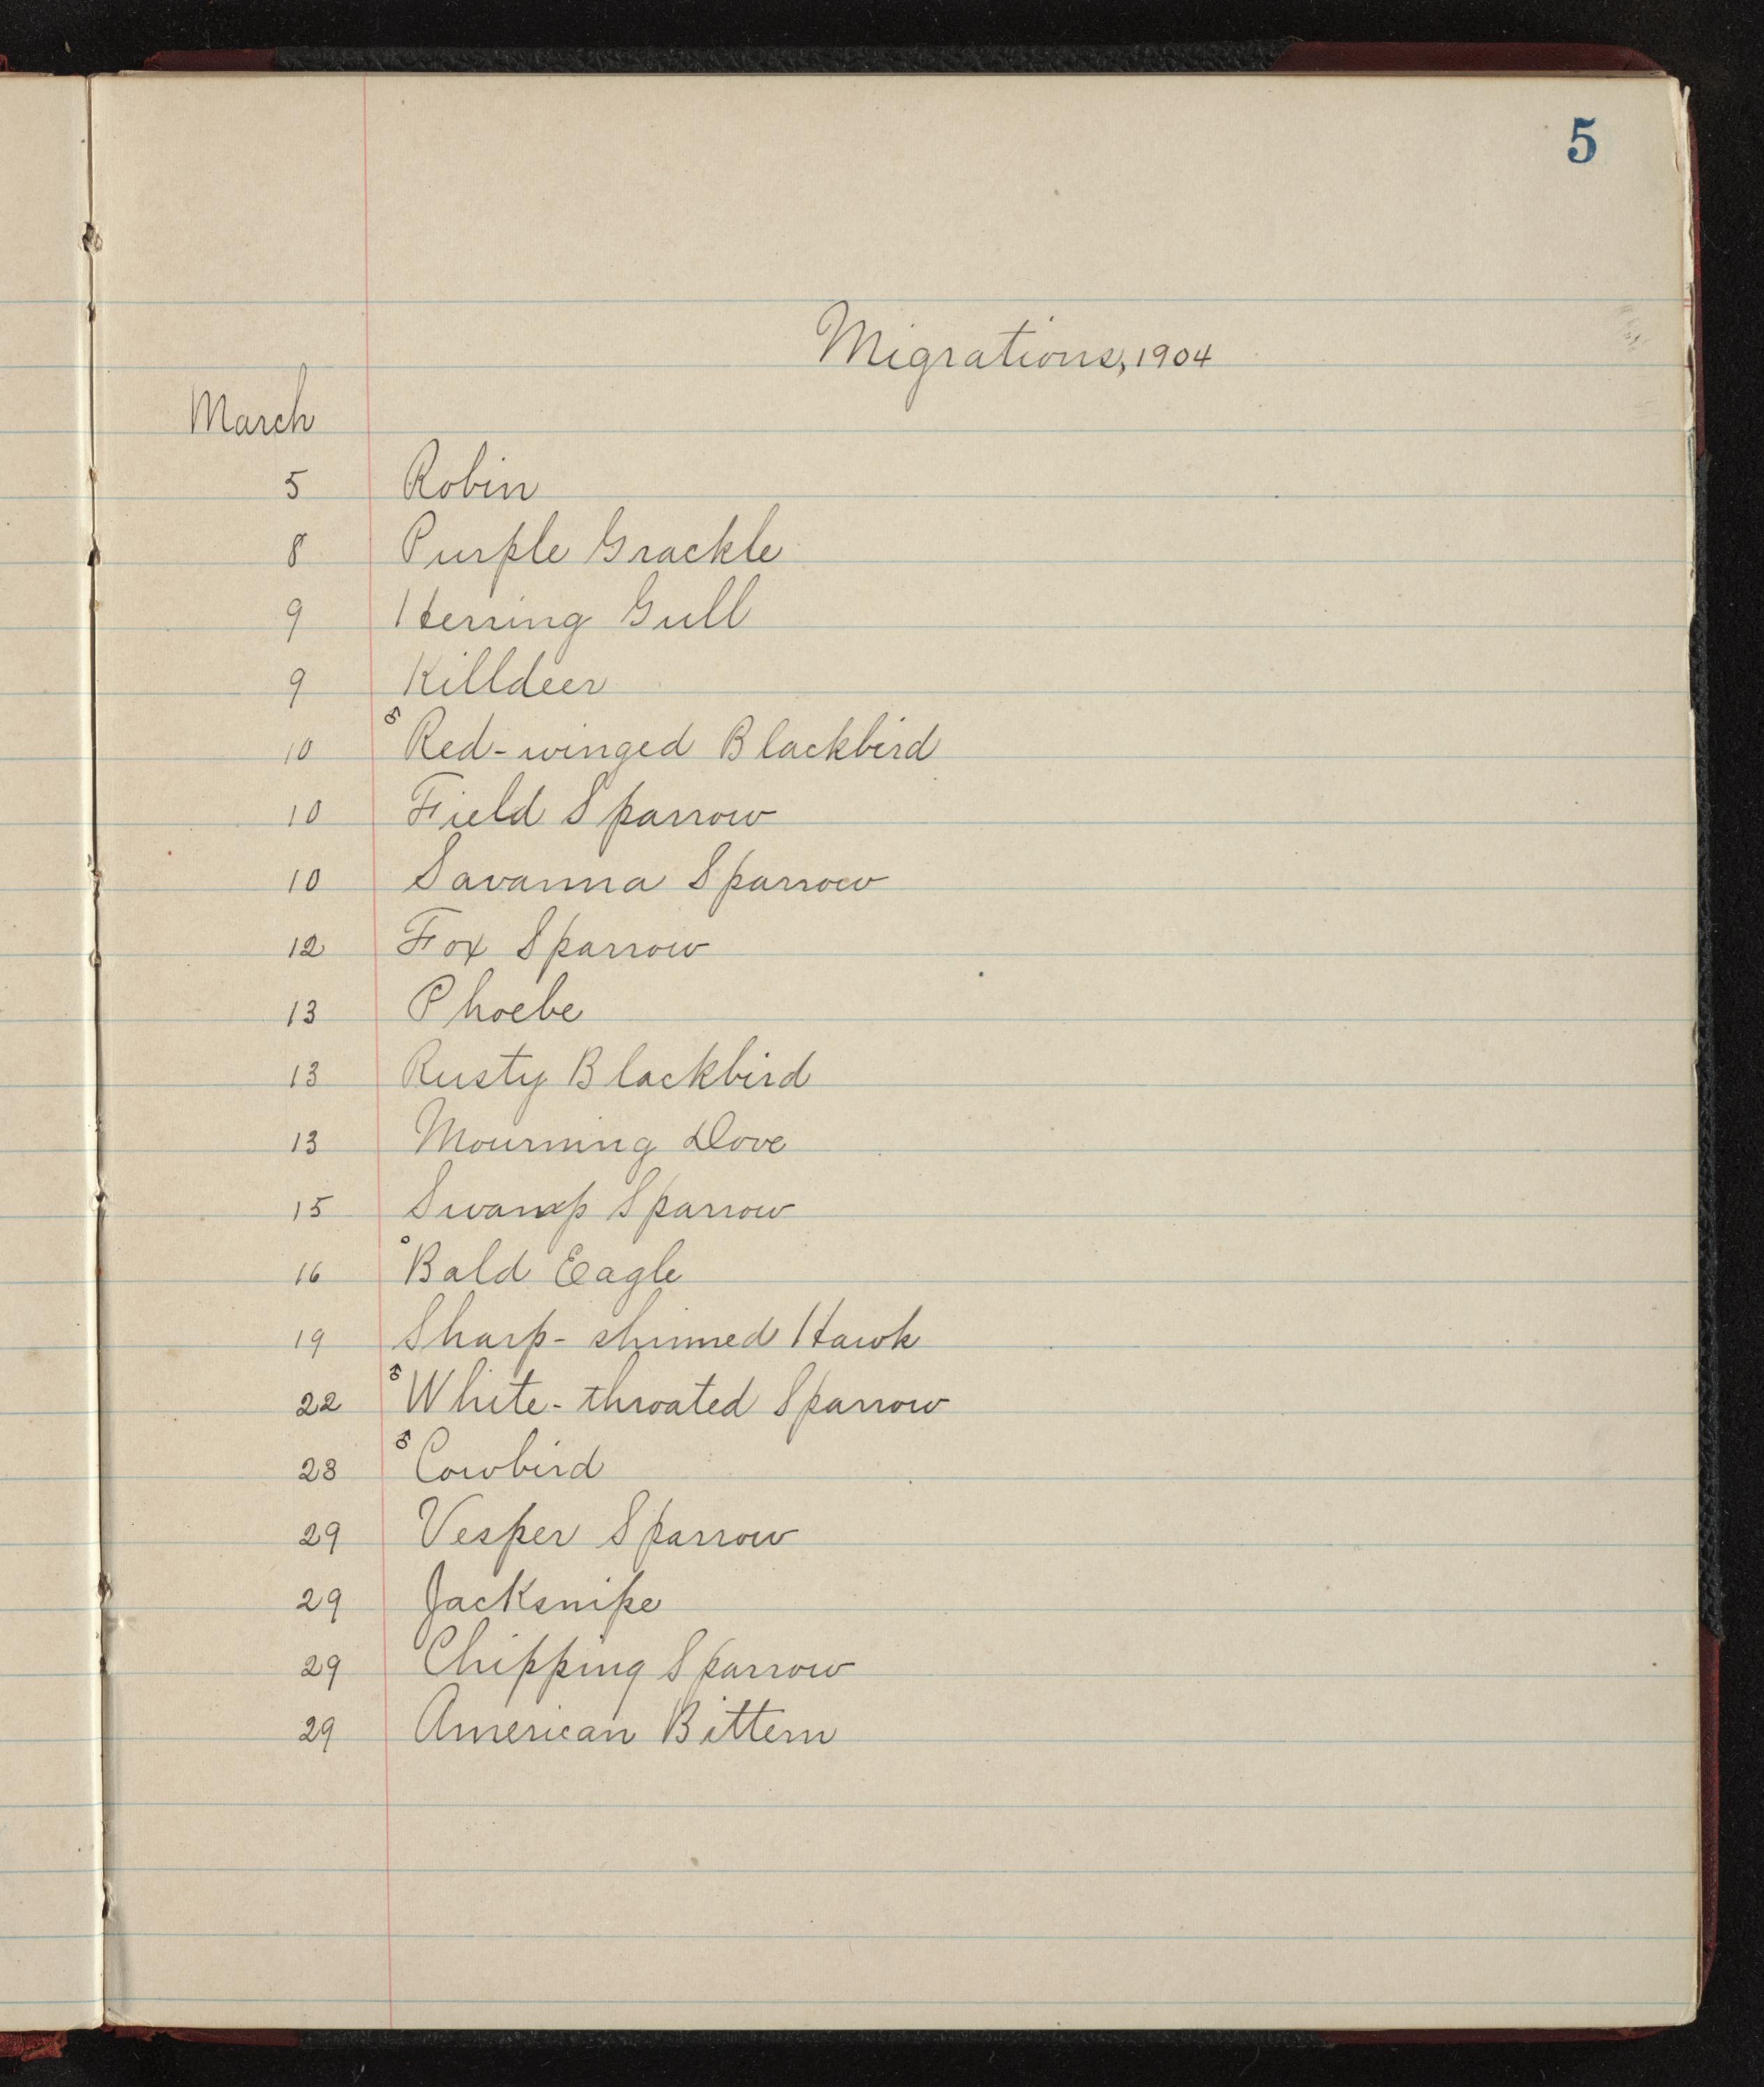 5
Migrations, 1904
March
5 Robin
8 Purple Grackle
9 Herring Gull
9 Killdeer
10 8 Red-winged Blackbird
10 Field Sparrow
10 Savanna Sparrow
12 Fox Sparrow
13 Phoebe
13 Rusty Blackbird
13 Mourning Dove
15 Swamp Sparrow
16 Bald Eagle
19 Sharp-shinned Hawk
22 8 White-throated Sparrow
23 8 Cowbird
29 Vesper Sparrow
29 Jacksnipe
29 Chipping Sparrow
29 American Bittern